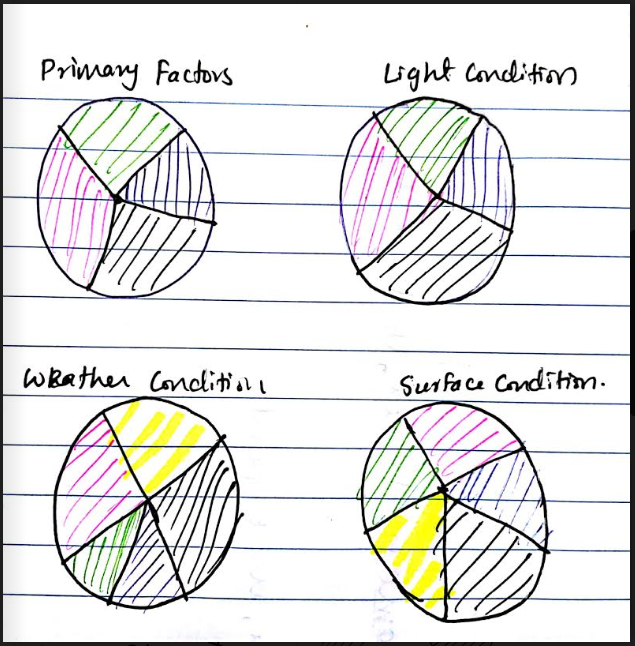 Primary Factors
Light Condition
Weather Condition
Surface Condition.